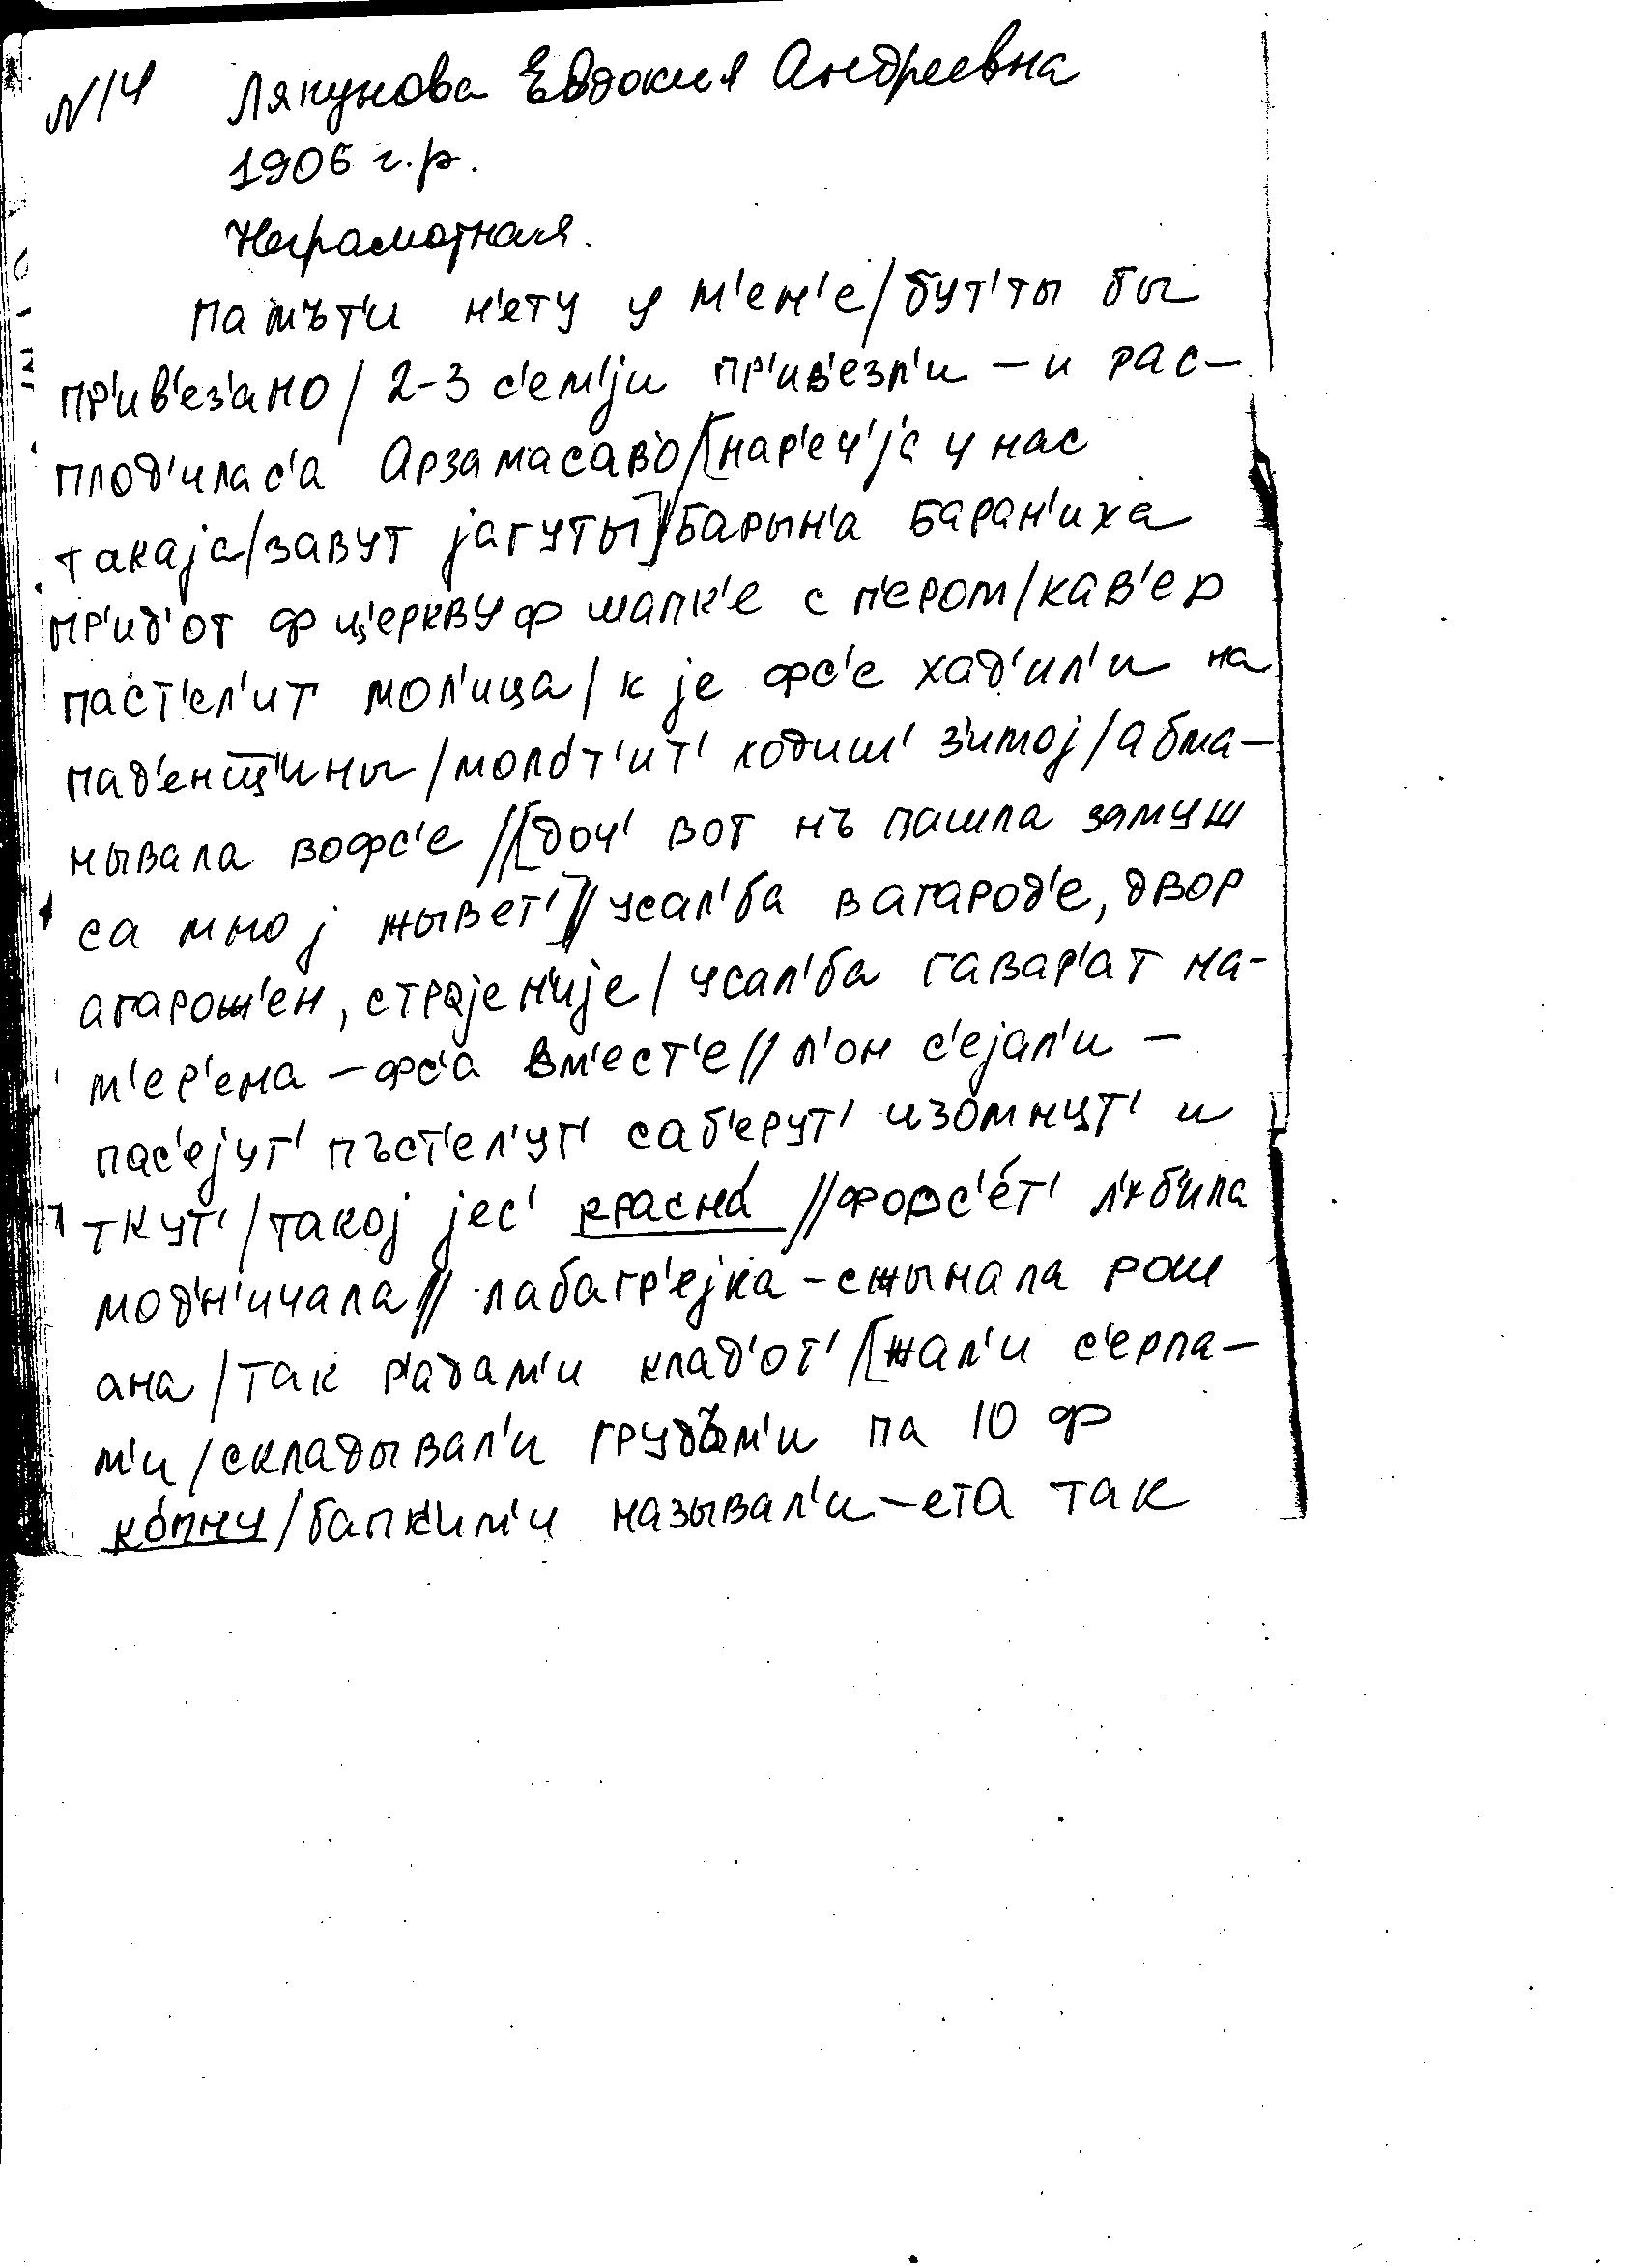 N14 Лякунова Евдокия Андреевна
1906 г.р.
Неграмотная.
памът'и н'ету у м'ен'е/бут'ты бы
пр'ив'ез'ано/2-3 с'ем'jи пр'ив'езл'и – и рас-
плод'илас'а Арзамасаво/[нар'еч'jа у нас
такаjа/завут jагуты]//Барын'а Баран'иха
пр'ид'от ф ц'еркву ф шапк'е с п'ером/кав'ер
паст'ел'ит мол'ица/к jе фс'е хад'ил'и на
пад'енщ'ины/молот'ит' ходиш' з'имоj/абма-
нывала вофс'е//[доч' вот нъ пашла замуш
са мноj жывет']//усал'ба вагарод'е, двор
агарож'ен, строjен'иjе/усал'ба гавар'ат на-
м'ер'ена – фс'а вм'ест'е//л'он с'еjал'и –
пас'еjут' пъст'ел'ут' саб'ерут' изомнут' и
ткут'/такоj jес' красна́//форс'е́т' л'уб'ила
модн'ичала//лабагр'еjка – сжынала рош
ана/так р'адам'и клад'от'/[жал'и с'ерпа-
м'и/складывал'и грудъм'и па 10 ф
ко́пну/бапк'им'и называл'и – ета так